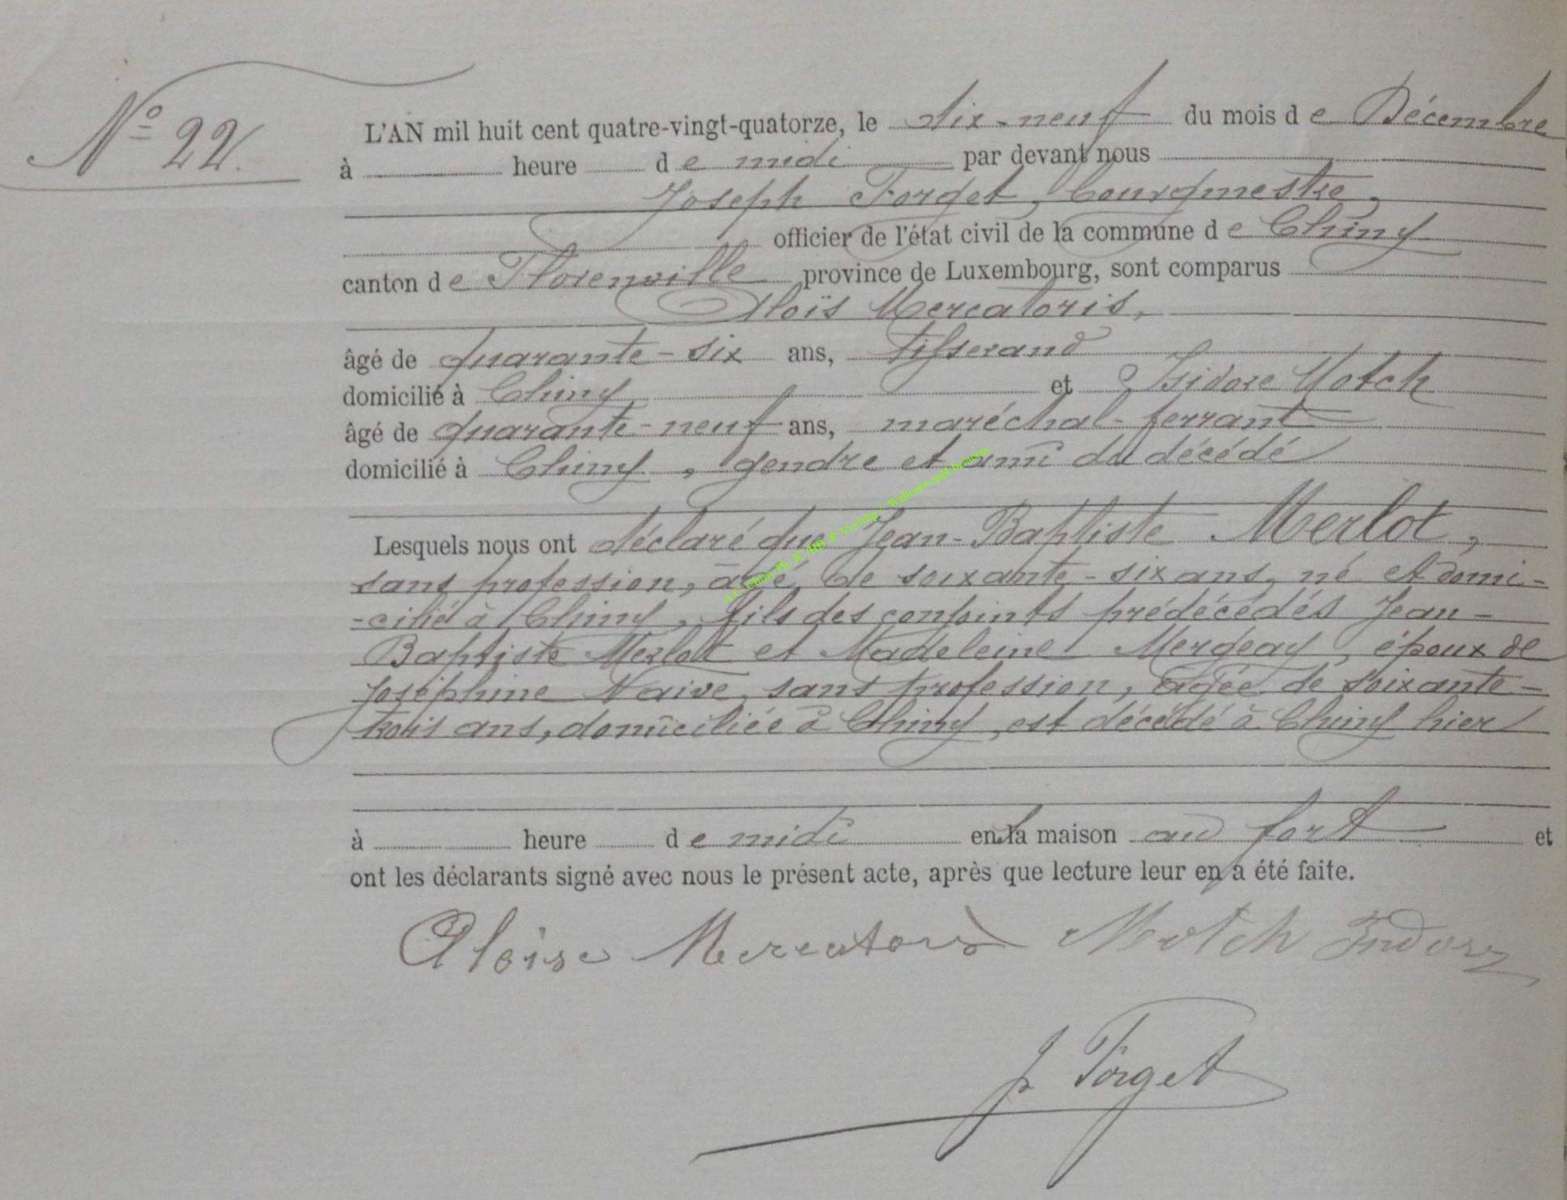 N° 22.
L'AN mil huit cent quatre-vingt-quatorze, le dix-neuf du mois de Décembre
à heure de midi par devant nous
Joseph Forget, bourgmestre,
officier de l'état civil de la commune de Chiny
canton de Florenville province de Luxembourg, sont comparus
Aloïs Mercatoris,
âgé de quarante-six ans, tisserand
domicilié à Chiny et Isidore Motch
âgé de quarante-neuf ans, maréchal-ferrant
domicilié à Chiny, gendre et ami du décédé
Lesquels nous ont déclaré que Jean-Baptiste Merlot,
sans profession, âgé de soixante-six ans, né et domi-
-cilié à Chiny, fils des conjoints prédécédés Jean-
Baptiste Merlot et Madeleine Mergeay, époux de
Joséphine Naive, sans profession, âgée de soixante-
trois ans, domiciliée à Chiny, est décédé à Chiny hier
à heure de midi en la maison au fort et
ont les déclarants signé avec nous le présent acte, après que lecture leur en a été faite.
Aloïse Mercatoris Motch Isidore
J Forget